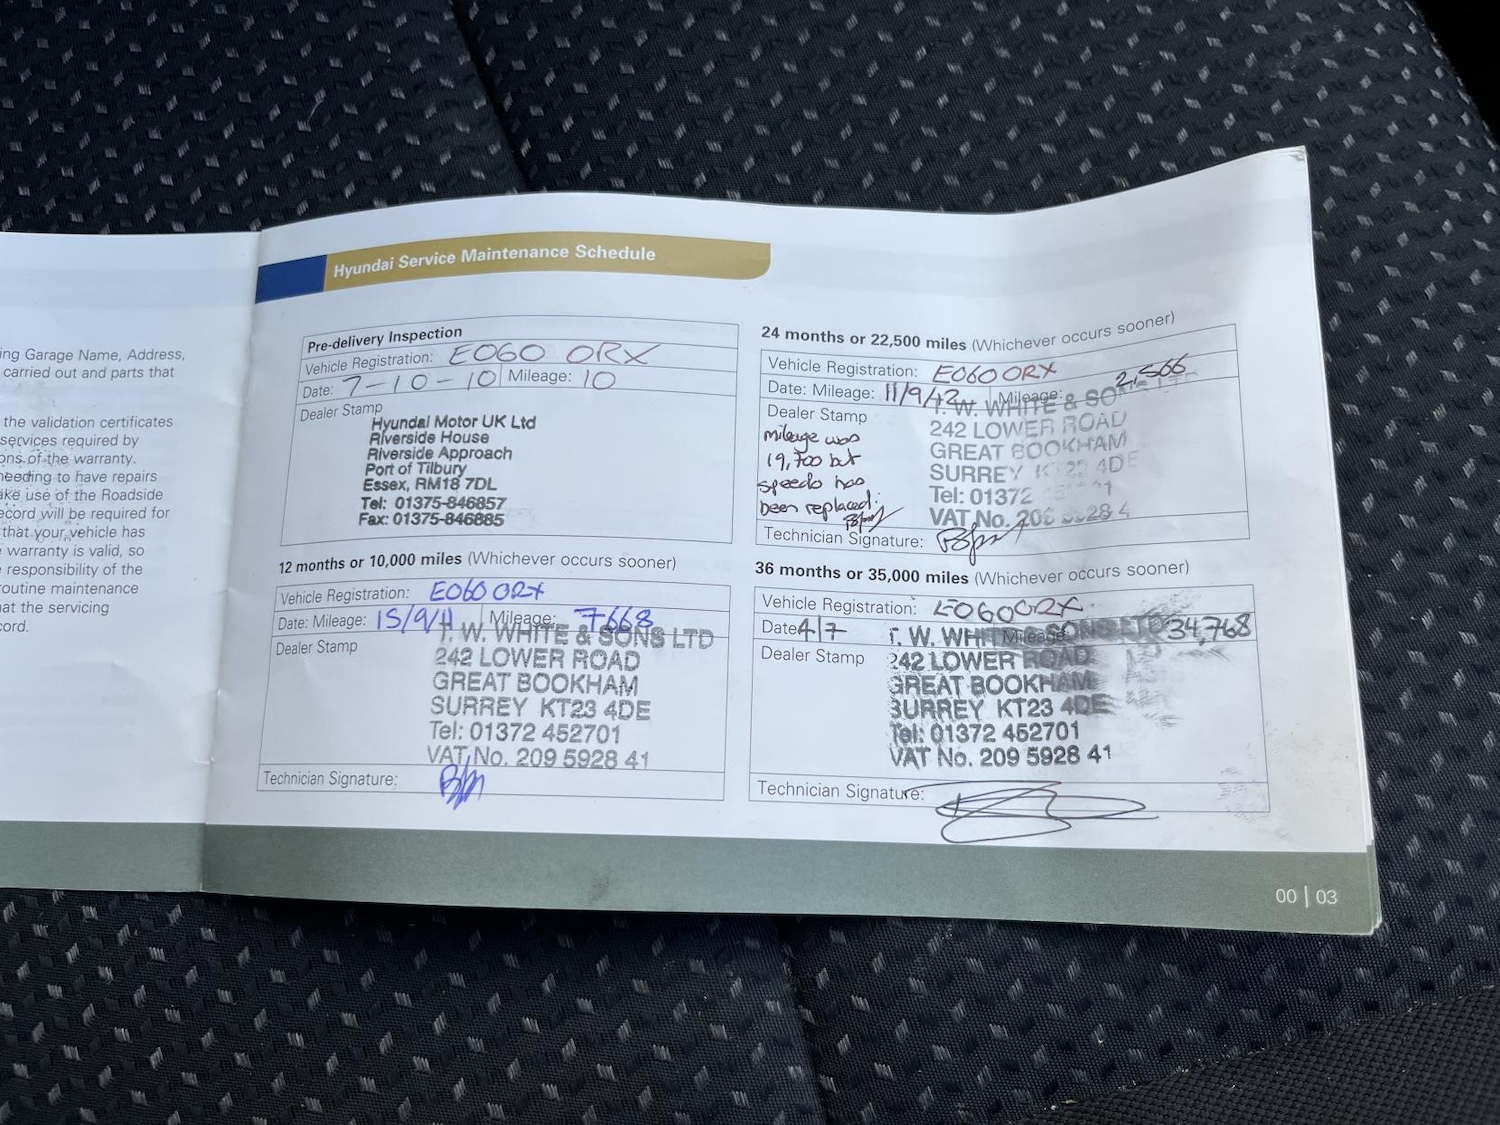 ing Garage Name, Address,
carried out and parts that
the validation certificates
services required by
ons of the warranty.
needing to have repairs
ake use of the Roadside
ecord will be required for
that your vehicle has
warranty is valid, so
responsibility of the
outine maintenance
at the servicing
cord.
Hyundai Service Maintenance Schedule
Pre-delivery Inspection
Vehicle Registration: EO60 ORX
Date: 7-10-10 Mileage: 10
Dealer Stamp
Hyundai Motor UK Ltd
Riverside House
Riverside Approach
Port of Tilbury
Essex, RM18 7DL
Tel: 01375-846857
Fax: 01375-846885
12 months or 10,000 miles (Whichever occurs sooner)
Vehicle Registration: EO60 ORX
Date: Mileage: 15/9/11 Mileage: 7668
Dealer Stamp
T. W. WHITE & SONS LTD
242 LOWER ROAD
GREAT BOOKHAM
SURREY KT23 4DE
Tel: 01372 452701
VAT No. 209 5928 41
Technician Signature:
24 months or 22,500 miles (Whichever occurs sooner)
Vehicle Registration: EO60 ORX
Date: Mileage: 11/9/12 Mileage: 2,566
Dealer Stamp
mileage was
19,700 but
speedo has
been replaced.
T. W. WHITE & SONS LTD
242 LOWER ROAD
GREAT BOOKHAM
SURREY KT23 4DE
Tel: 01372
VAT No.
Technician Signature:
36 months or 35,000 miles (Whichever occurs sooner)
Vehicle Registration: EO60 ORX
Date 4/7 Mileage 34,768
Dealer Stamp
T. W. WHITE & SONS LTD
242 LOWER ROAD
GREAT BOOKHAM
SURREY KT23 4DE
Tel: 01372 452701
VAT No. 209 5928 41
Technician Signature:
00 | 03